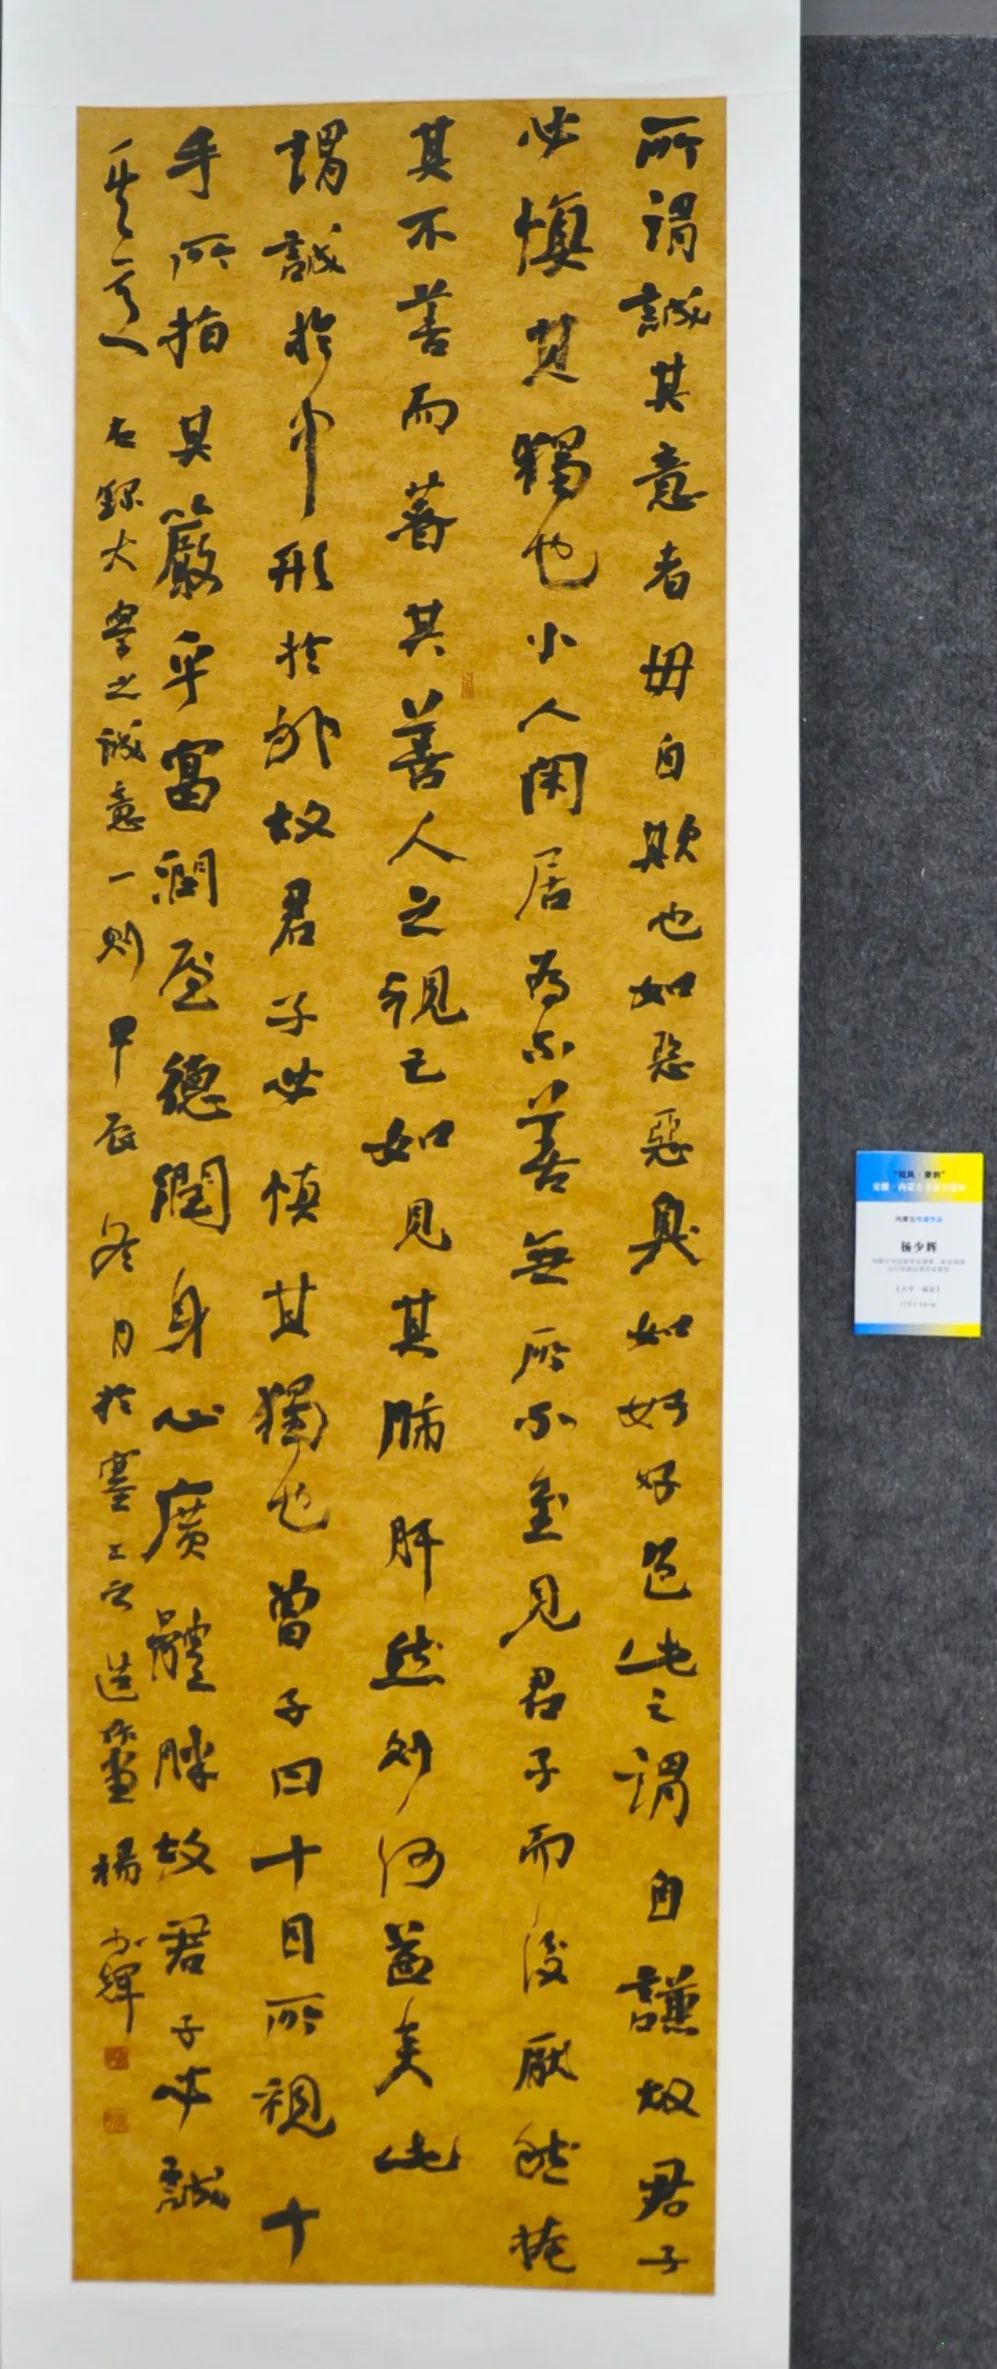 所謂誠其意者毋自欺也如惡惡臭如好好色此之謂自謙故君子
必慎其獨也小人閑居為不善無所不至見君子而後厭然掩
其不善而著其善人之視己如見其肺肝然則何益矣此
謂誠於中形於外故君子必慎其獨也曾子曰十目所視十
手所指其嚴乎富潤屋德潤身心廣體胖故君子必誠
其意 右錄大學之誠意一則 甲辰冬月於塞上 楊少輝
内蒙古
杨少辉
《大学·诚意》